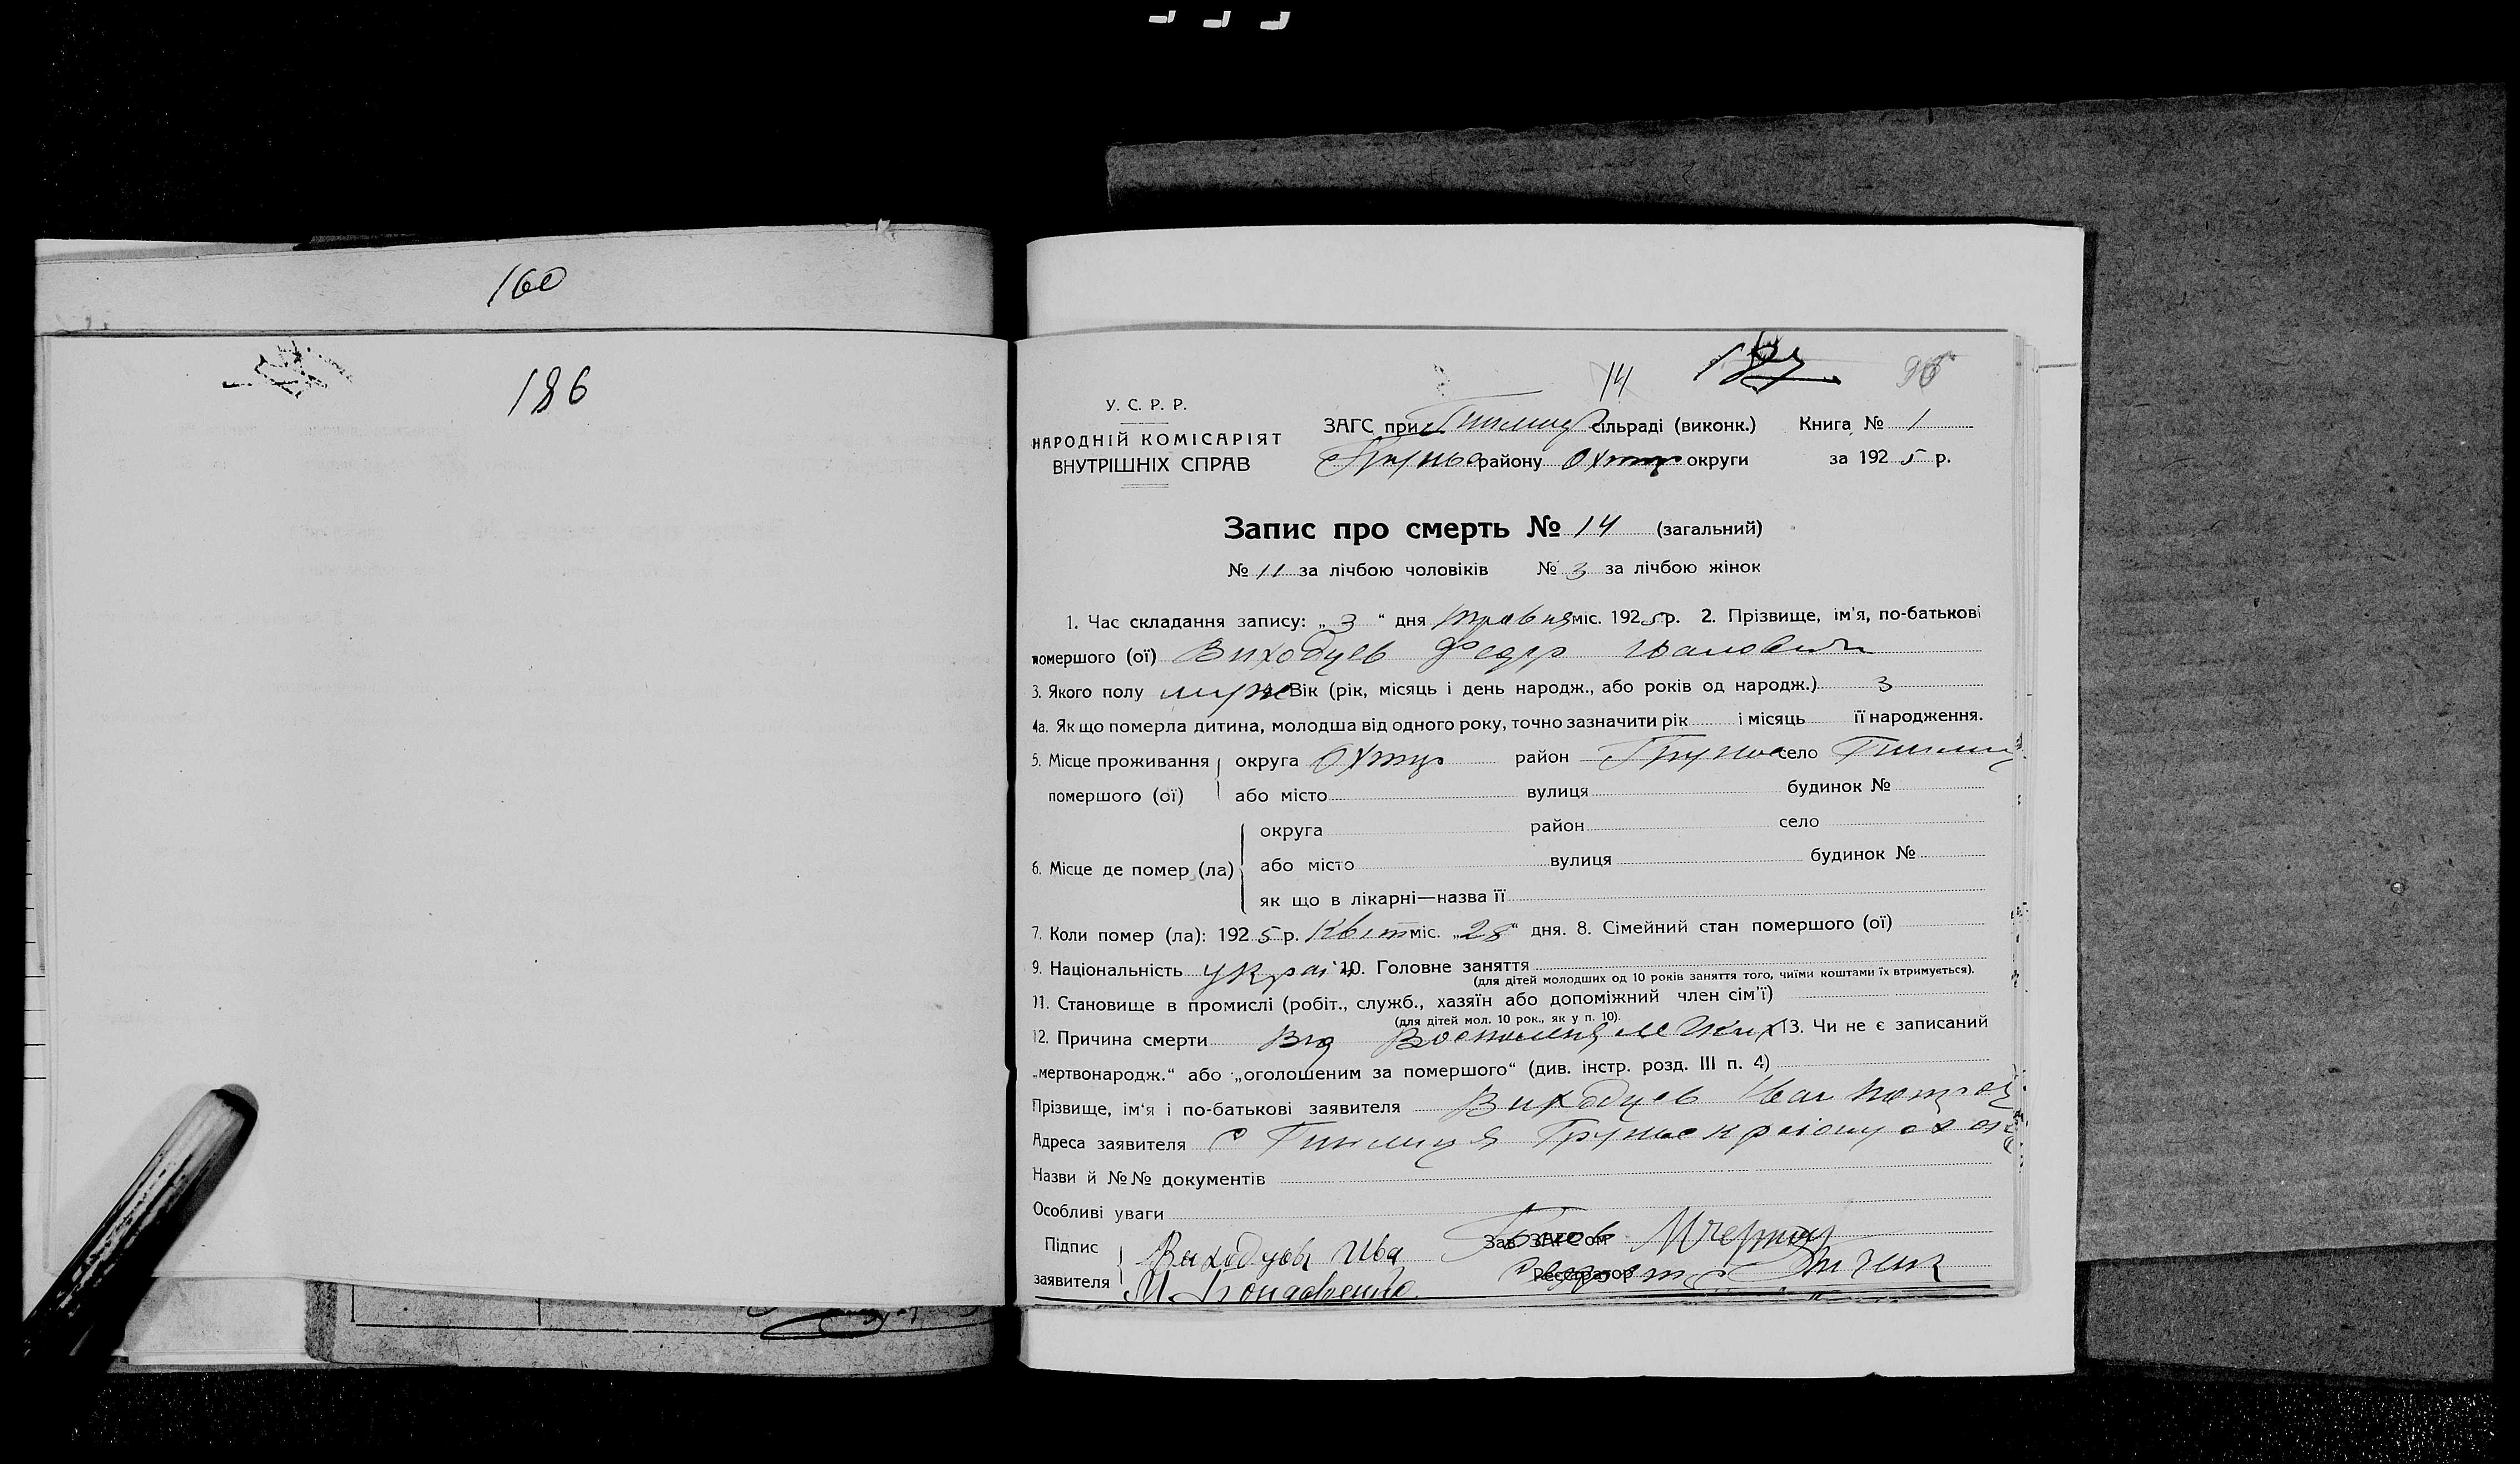 160
186
14 187 96
У. С. Р. Р.
НАРОДНІЙ КОМІСАРІЯТ
ВНУТРІШНІХ СПРАВ
ЗАГС при сільраді (виконк.) Книга № 1
району Охтир округи за 1925 р.
Запис про смерть № 14 (загальний)
№ 11 за лічбою чоловіків № 3 за лічбою жінок
1. Час складання запису: „ 3 “ дня травня міс. 1925 р. 2. Прізвище, ім'я, по-батькові
помершого (ої) Виходцев Федір Іванович
3. Якого полу муж 4. Вік (рік, місяць і день народж., або років од народж.) 3
4а. Як що померла дитина, молодша від одного року, точно зазначити рік і місяць її народження.
5. Місце проживання округа Охтир район Грунськ село
помершого (ої) або місто вулиця будинок №
округа район село
6. Місце де помер (ла) або місто вулиця будинок №
як що в лікарні—назва її
7. Коли помер (ла): 1925 р. Квіт міс. „28“ дня. 8. Сімейний стан помершого (ої)
9. Національність україн 10. Головне заняття
(для дітей молодших од 10 років заняття того, чиїми коштами їх втримується).
11. Становище в промислі (робіт., служб., хазяїн або допоміжний член сім'ї)
(для дітей мол. 10 рок., як у п. 10).
12. Причина смерти Від 13. Чи не є записаний
„мертвонародж.“ або „оголошеним за помершого“ (див. інстр. розд. III п. 4)
Прізвище, ім'я і по-батькові заявителя Виходцев Іван
Адреса заявителя с
Назви й №№ документів
Особливі уваги
Підпис Виходцев Ива Зав. ЗАГС'ом
заявителя Реєстратор